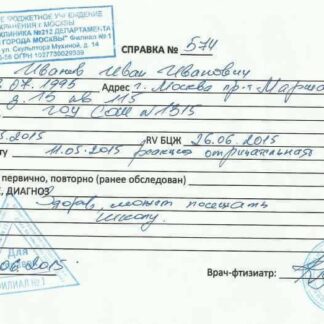 Е БЮДЖЕТНОЕ УЧРЕЖДЕНИЕ
ХРАНЕНИЯ г. МОСКВЫ
КЛИНИКА №212 ДЕПАРТАМЕНТА
ГОРОДА МОСКВЫ" Филиал № 1
ул. Скульптора Мухиной, д. 14
СПРАВКА № 574
Иванов Иван Иванович
.07.1995 Адрес г. Москва пр-т Марша
д. 15 кв 115
ГОУ СОШ №1515
.2015 RV БЦЖ 26.06.2015
11.05.2015 реакция отрицательная
первично, повторно (ранее обследован)
, ДИАГНОЗ Здоров, может посещать
школу.
Для
.06.2015
ФИЛИАЛ №1
Врач-фтизиатр: